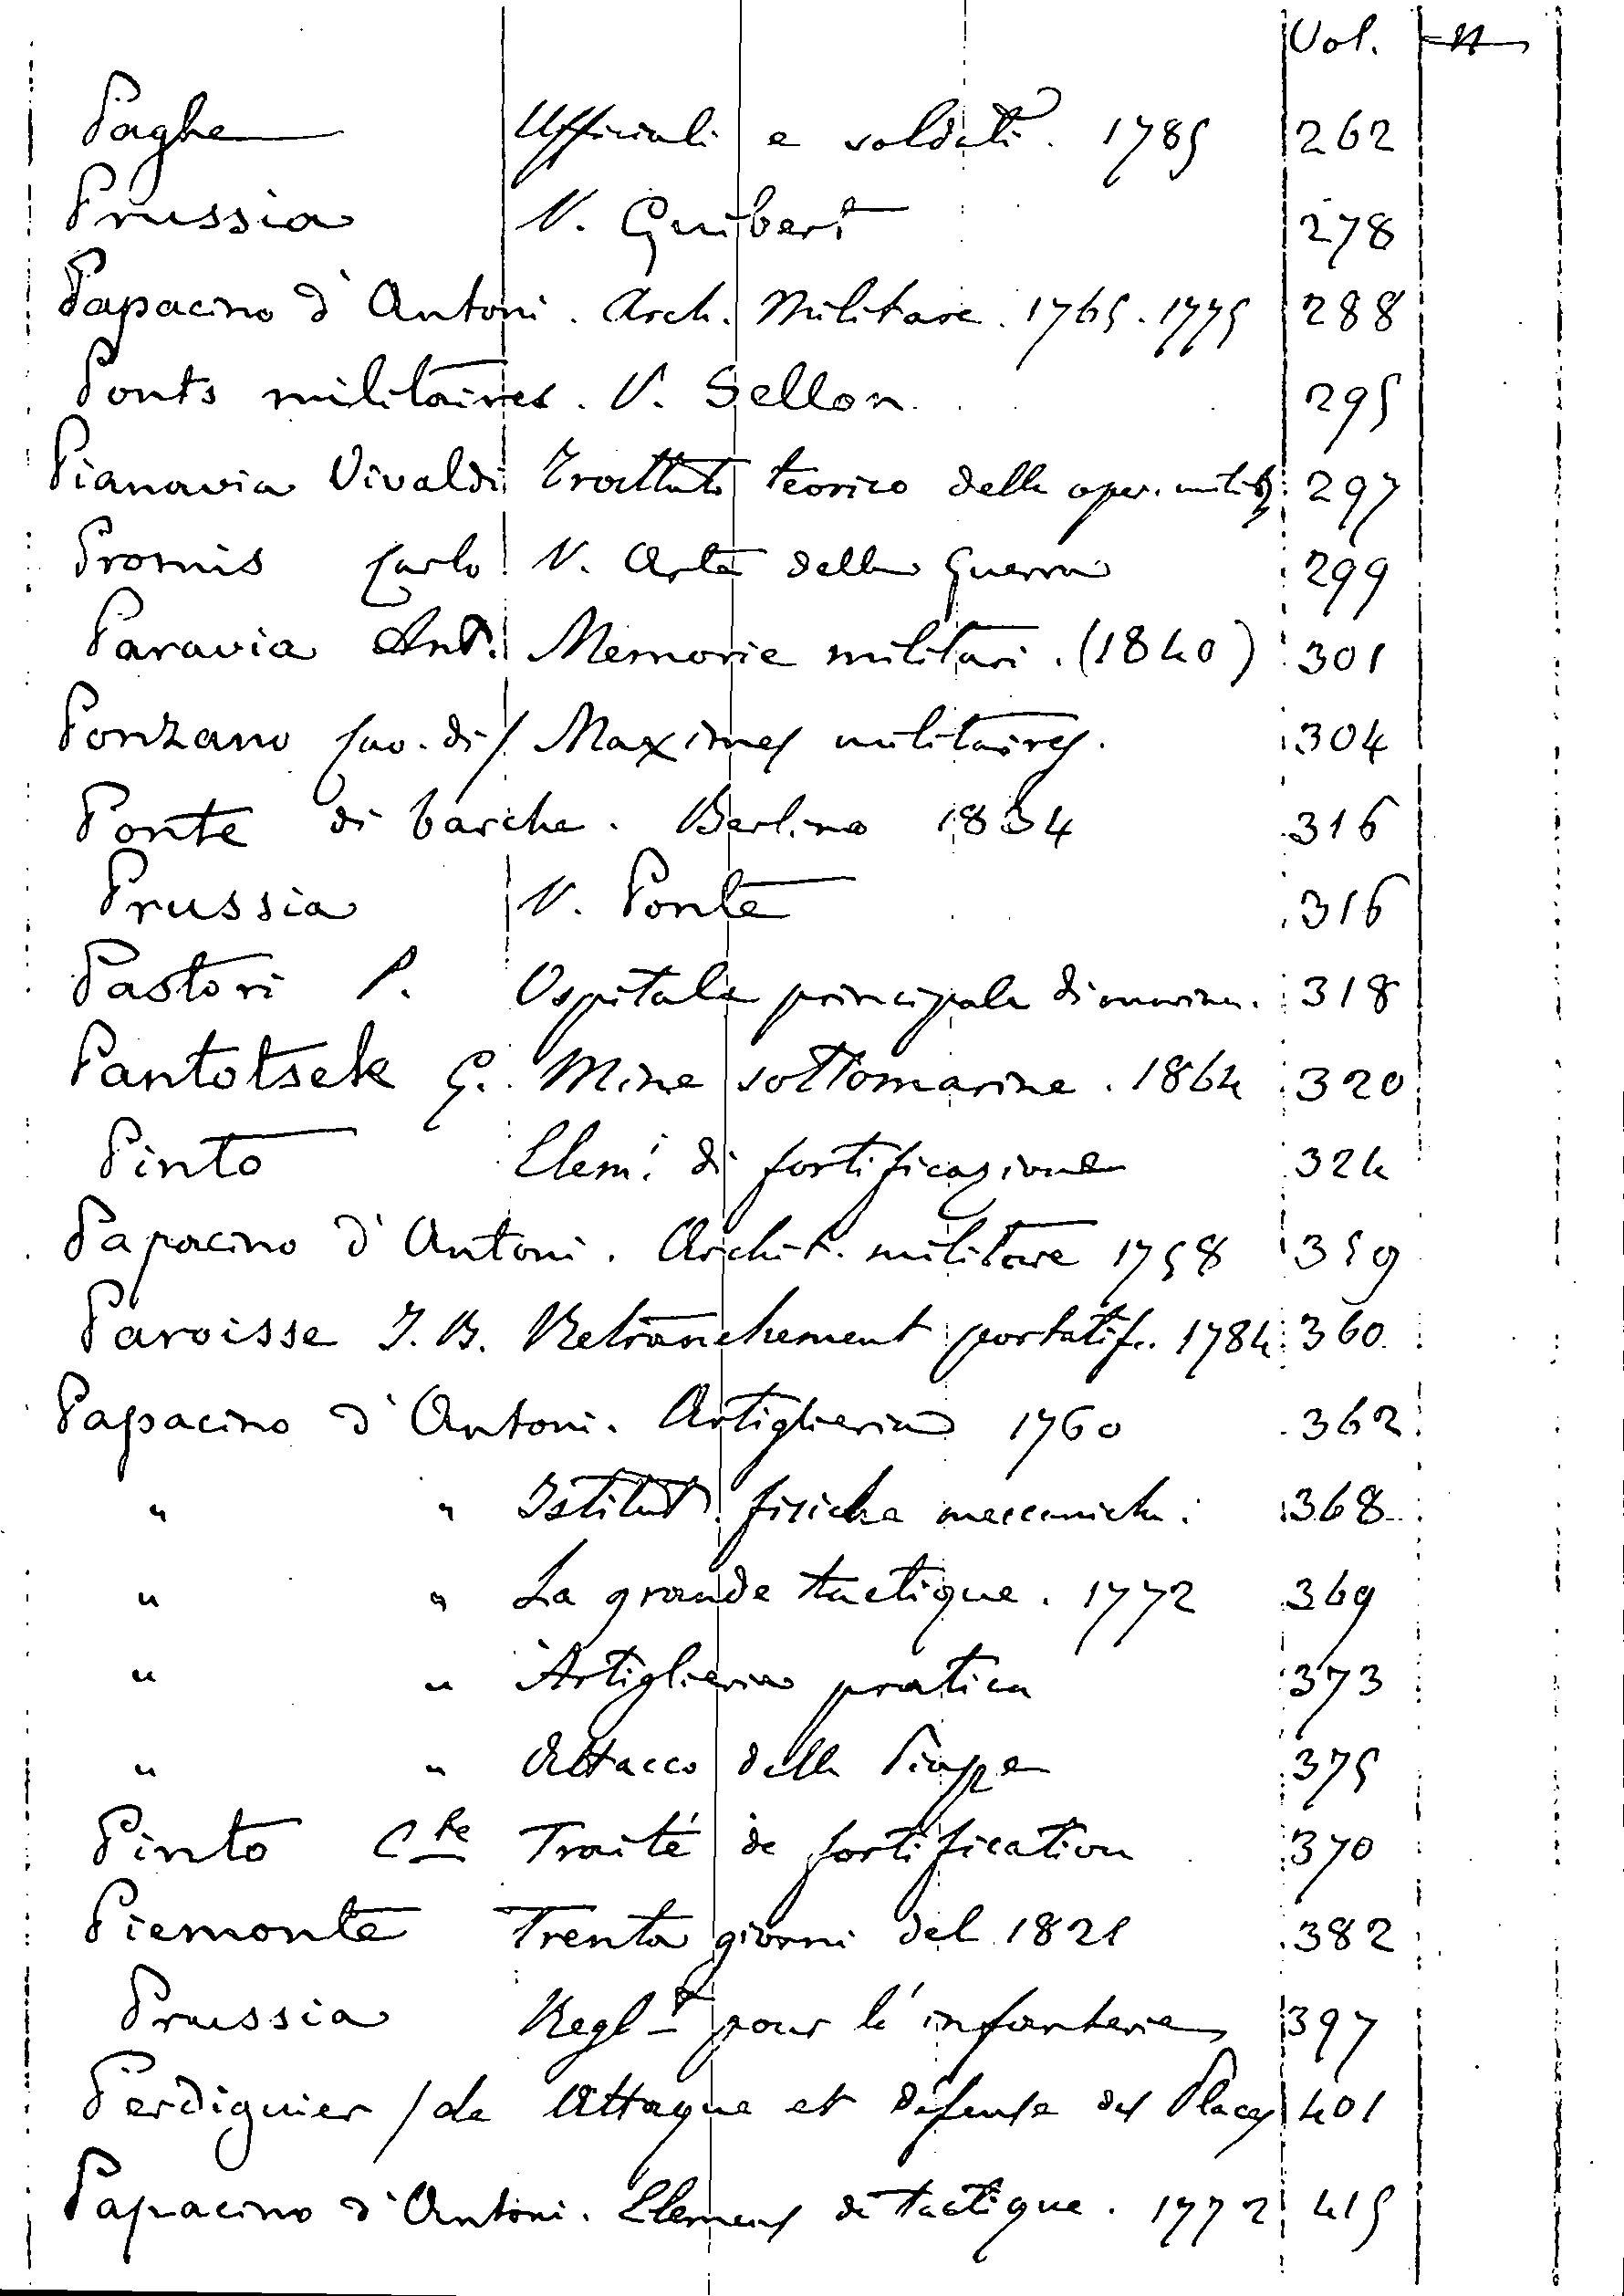 Vol.
Paghe Ufficiali e soldati. 1785 262
Prussia V. Guibert 278
Papacino d'Antoni. Arch. Militare. 1765. 1775 288
Ponts militaires. V. Sellon 295
Pianavia Vivaldi Trattato teorico delle oper. milit. 297
Promis Carlo V. Arte della Guerra 299
Paravia Ant. Memorie militari. (1840) 301
Ponzano Cav. di / Maximes militaires. 304
Ponte di barche. Berlino 1834 316
Prussia V. Ponte 316
Pastori P. Ospitale principale di marina. 318
Pantotsek G. Mine sottomarine. 1864 320
Pinto Elem.i di fortificazione 324
Papacino d'Antoni. Archit. militare 1758 359
Paroisse J. B. Retranchement portatif. 1784 360
Papacino d'Antoni. Artiglieria 1760 362
" " Istitut. fisiche meccaniche. 368
" " La grande tactique. 1772 369
" " Artiglieria pratica 373
" " Attacco delle Piazze 375
Pinto Cte Traité de fortification 370
Piemonte Trenta giorni del 1821 382
Prussia Regl-t pour l'infanterie 397
Perdiguier / de Attaque et défense des Places 401
Papacino d'Antoni. Elemens de tactique. 1772 415